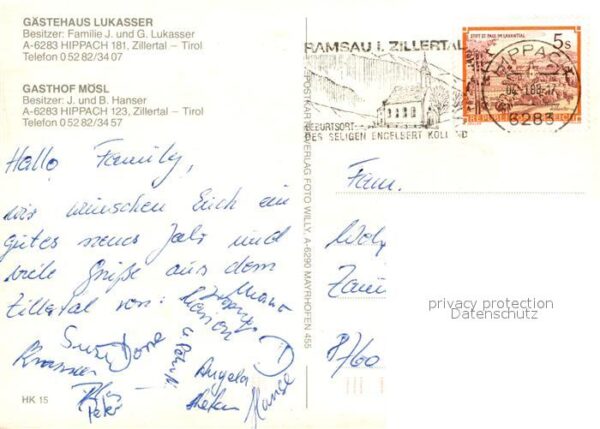 GÄSTEHAUS LUKASSER
Besitzer: Familie J. und G. Lukasser
A-6283 HIPPACH 181, Zillertal – Tirol
Telefon 0 52 82/34 07
GASTHOF MÖSL
Besitzer: J. und B. Hanser
A-6283 HIPPACH 123, Zillertal – Tirol
Telefon 0 52 82/34 57
Hallo Family,
wir wünschen Euch ein
gutes neues Jahr und
viele Grüße aus dem
Zillertal von:
Marion
Susi
Angela
Peter
Stefan
HK 15
POSTKARTENVERLAG FOTO WILLY, A-6290 MAYRHOFEN 455
RAMSAU i. ZILLERTAL
GEBURTSORT
DES SELIGEN ENGELBERT KOLLAND
STIFT ST. PAUL IM LAVANTTAL
5s
REPUBLIK ÖSTERREICH
HIPPACH
6283
Fam.
8760
privacy protection
Datenschutz